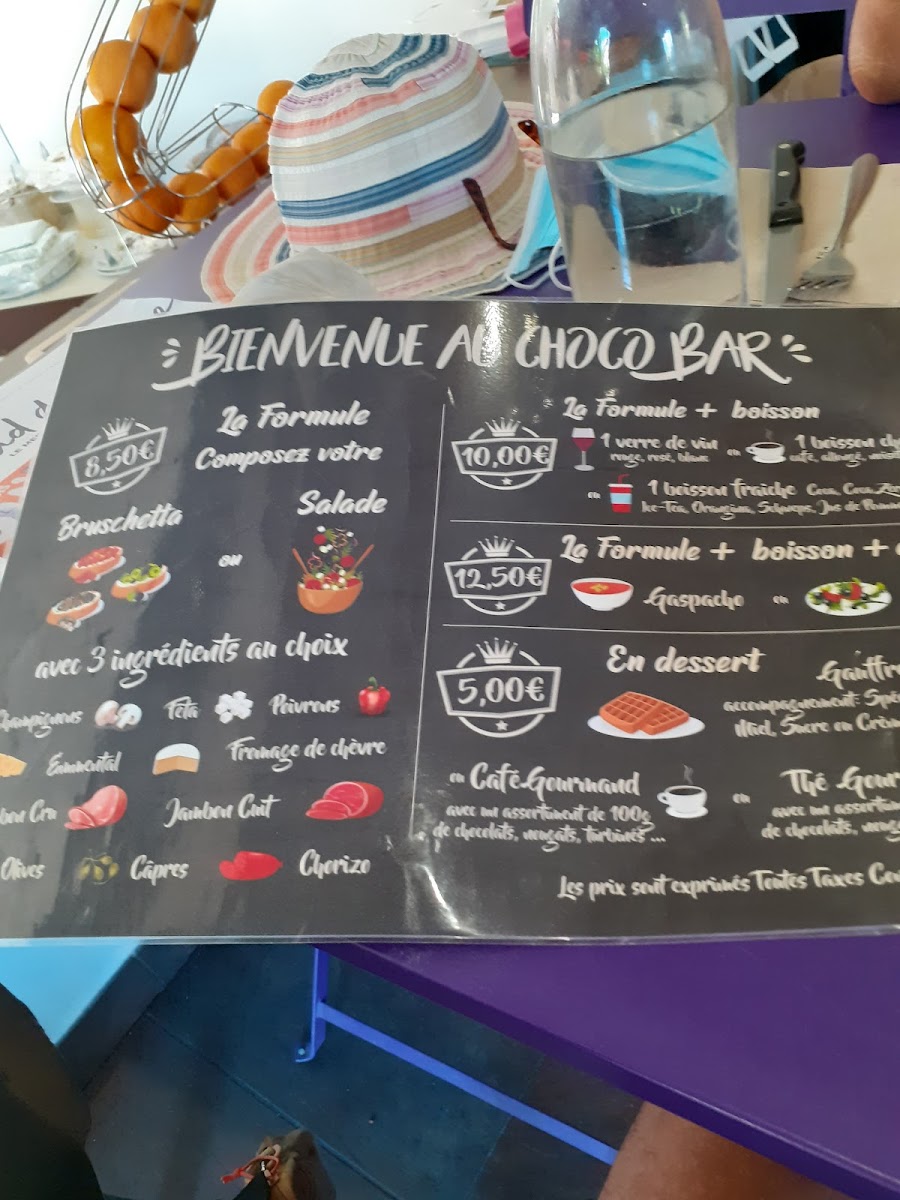 BIENVENUE AU CHOCO BAR
8,50€
La Formule
Composez votre
Bruschetta
ou
Salade
avec 3 ingrédients au choix
Champignons
Feta
Poivrons
Emmental
Fromage de chèvre
Jambon Cuit
Olives
Câpres
Chorizo
10,00€
La Formule + boisson
1 verre de vin
rouge, rosé, blanc
ou
1 boisson
café, allongé,
ou
1 boisson fraîche Coca, Coca
Ice-Tea, Orangina, Schweps, Jus de
12,50€
La Formule + boisson +
Gaspacho
ou
5,00€
En dessert
accompagnement:
Miel, Sucre ou
ou Café Gourmand
avec un assortiment de 100g
de chocolats, nougats, turbinés ...
ou
Thé
avec un
de chocolats,
Les prix sont exprimés Toutes Taxes